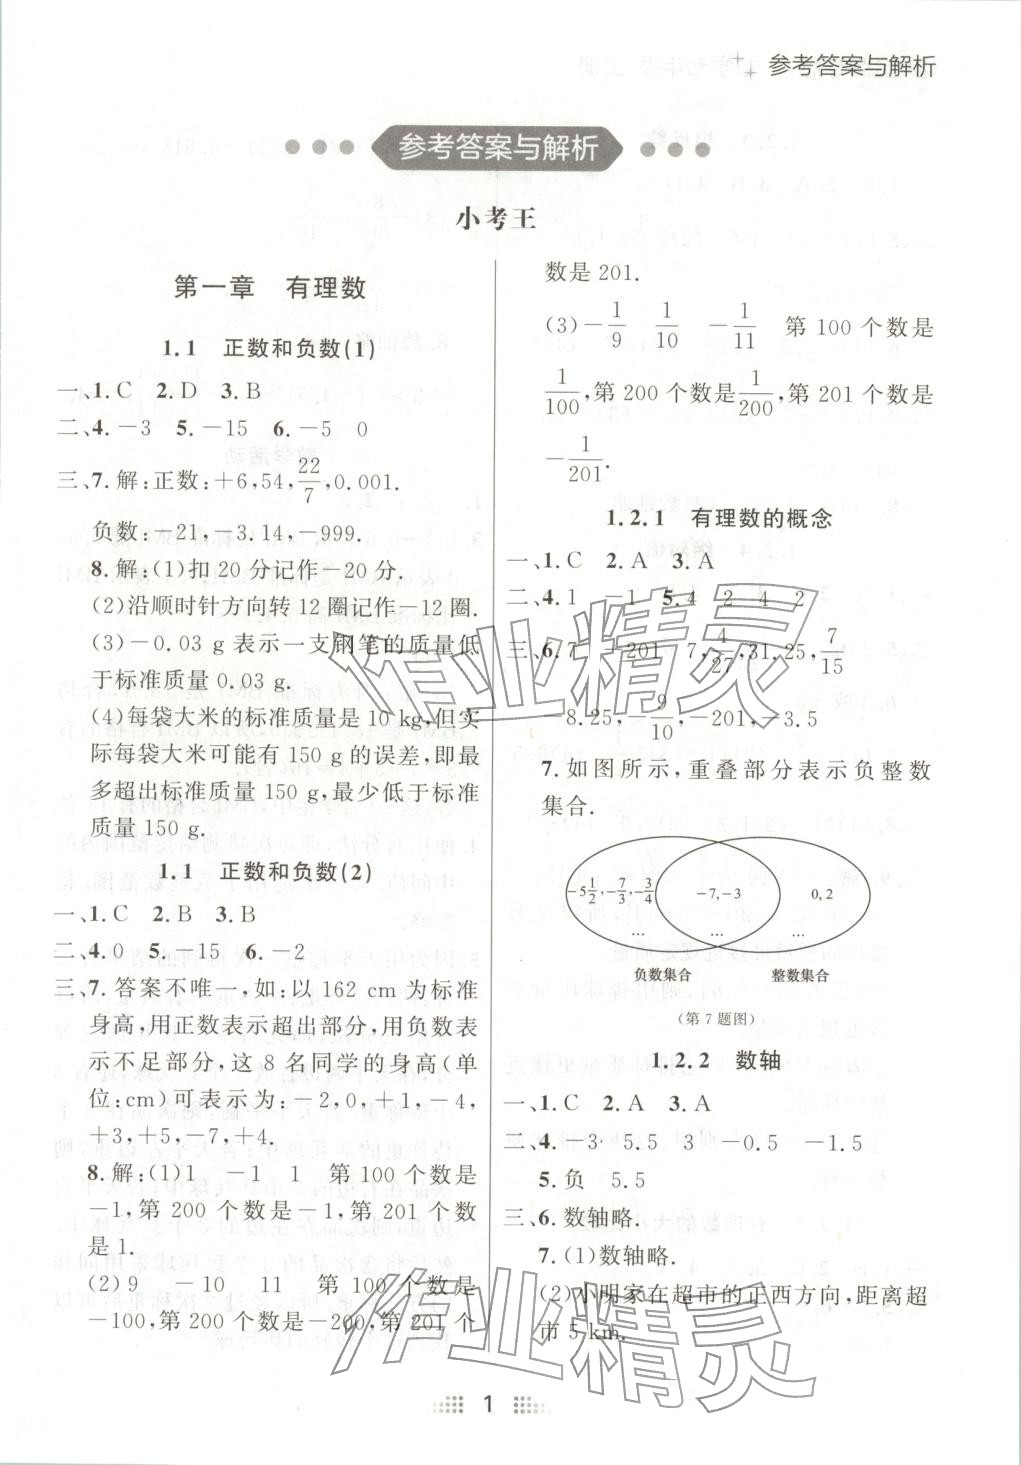 参考答案与解析
参考答案与解析
小考王
第一章 有理数
1.1 正数和负数(1)
一、1.C 2.D 3.B
二、4.-3 5.-15 6.-5 0
三、7.解:正数:+6,54,22/7,0.001.
负数:-21,-3.14,-999.
8.解:(1)扣20分记作-20分.
(2)沿顺时针方向转12圈记作-12圈.
(3)-0.03 g表示一支钢笔的质量低
于标准质量0.03 g.
(4)每袋大米的标准质量是10 kg,但实
际每袋大米可能有150 g的误差,即最
多超出标准质量150 g,最少低于标准
质量150 g.
1.1 正数和负数(2)
一、1.C 2.B 3.B
二、4.0 5.-15 6.-2
三、7.答案不唯一,如:以162 cm为标准
身高,用正数表示超出部分,用负数表
示不足部分,这8名同学的身高(单
位:cm)可表示为:-2,0,+1,-4,
+3,+5,-7,+4.
8.解:(1)1 -1 1 第100个数是
-1,第200个数是-1,第201个数
是1.
(2)9 -10 11 第100个数是
-100,第200个数是-200,第201个
数是201.
(3)-1/9 1/10 -1/11 第100个数是
1/100,第200个数是1/200,第201个数是
-1/201.
1.2.1 有理数的概念
一、1.C 2.A 3.A
二、4.1 -1 5.4 2 4 2
三、6.7 -201 7,4/27,31.25,7/15
-8.25,-9/10,-201,-3.5
7.如图所示,重叠部分表示负整数
集合.
-5 1/2,-7/3,-3/4 -7,-3 0,2
… … …
负数集合 整数集合
(第7题图)
1.2.2 数轴
一、1.C 2.A 3.A
二、4.-3 5.5 3 -0.5 -1.5
5.负 5.5
三、6.数轴略.
7.(1)数轴略.
(2)小明家在超市的正西方向,距离超
市5 km.
作业精灵
作业精灵
1